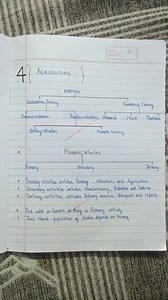 4 AGRICULTURE
FARMING
Subsistence farming Commercial farming
Intensive subsistence Primitive subsistence Commercial Mixed Plantation
Shifting cultivation Nomadic herding
Economic activities
Primary Secondary Tertiary
• Primary activities includes farming and Agriculture
• Secondary activities includes manufacturing
• Tertiary activities includes delivery services, transport and
• One who is farmer so they is Primary activity
• Two third population of India depends on farming